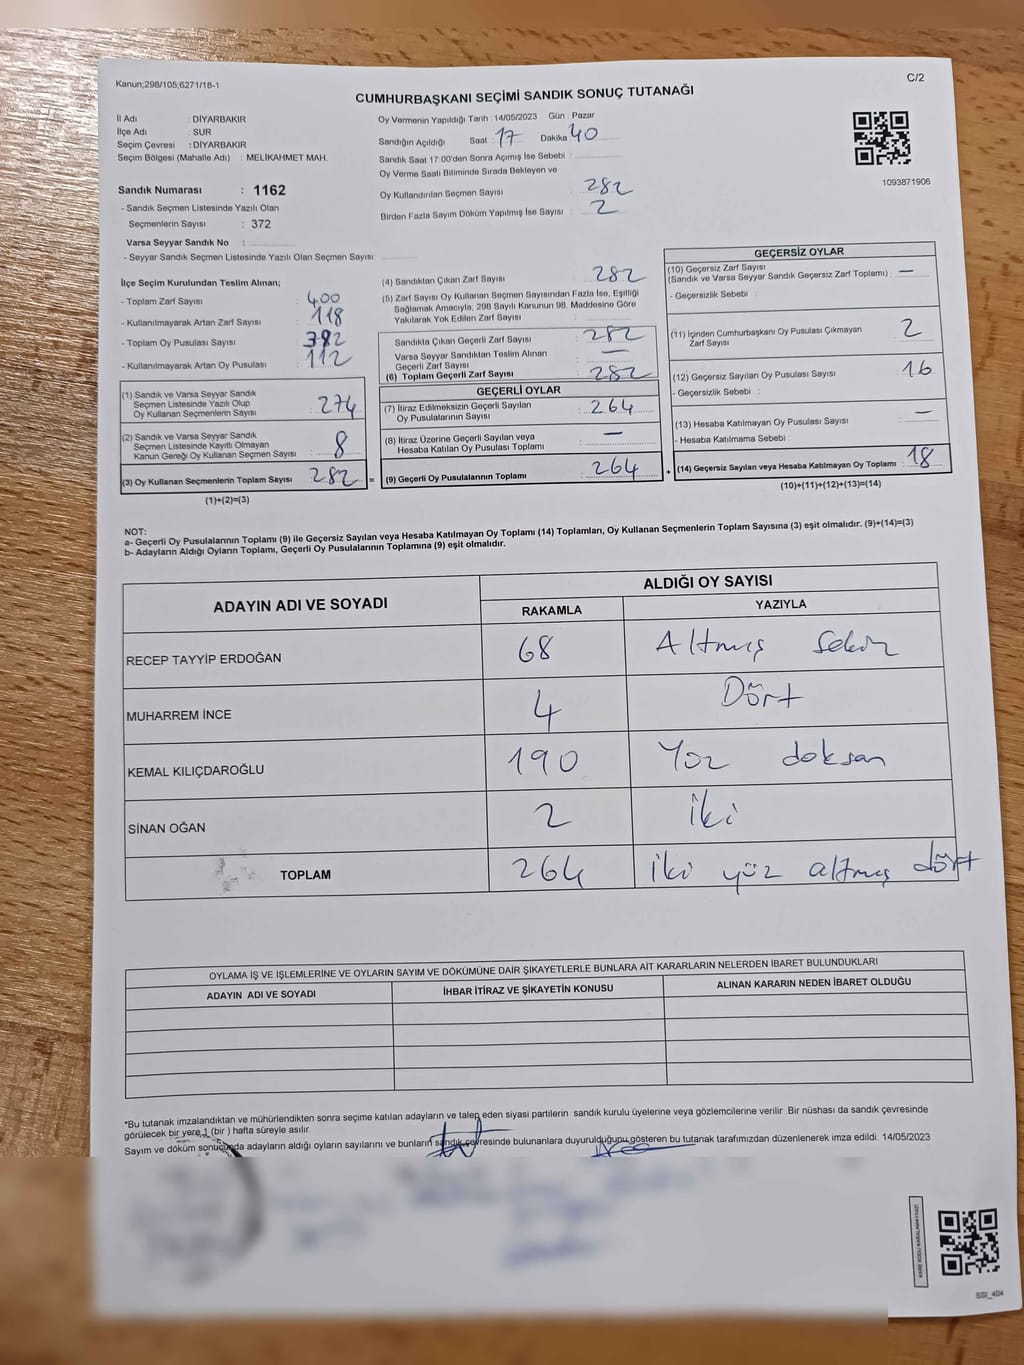 Kanun;298/105;6271/18-1
C/2
CUMHURBAŞKANI SEÇİMİ SANDIK SONUÇ TUTANAĞI
İl Adı : DİYARBAKIR
İlçe Adı : SUR
Seçim Çevresi : DİYARBAKIR
Seçim Bölgesi (Mahalle Adı) : MELİKAHMET MAH.
Sandık Numarası : 1162
- Sandık Seçmen Listesinde Yazılı Olan
Seçmenlerin Sayısı : 372
Varsa Seyyar Sandık No :
- Seyyar Sandık Seçmen Listesinde Yazılı Olan Seçmen Sayısı:
Oy Vermenin Yapıldığı Tarih : 14/05/2023 Gün : Pazar
Sandığın Açıldığı Saat : 17 Dakika : 40
Sandık Saat 17:00'den Sonra Açımış İse Sebebi :
Oy Verme Saati Bitiminde Sırada Bekleyen ve
Oy Kullandırılan Seçmen Sayısı : 282
Birden Fazla Sayım Döküm Yapılmış İse Sayısı : 2
1093871906
İlçe Seçim Kurulundan Teslim Alınan;
- Toplam Zarf Sayısı : 400
- Kullanılmayarak Artan Zarf Sayısı : 118
- Toplam Oy Pusulası Sayısı : 382
- Kullanılmayarak Artan Oy Pusulası : 112
(1) Sandık ve Varsa Seyyar Sandık
Seçmen Listesinde Yazılı Olup
Oy Kullanan Seçmenlerin Sayısı : 274
(2) Sandık ve Varsa Seyyar Sandık
Seçmen Listesinde Kayıtlı Olmayan
Kanun Gereği Oy Kullanan Seçmen Sayısı : 8
(3) Oy Kullanan Seçmenlerin Toplam Sayısı : 282 =
(1)+(2)=(3)
(4) Sandıktan Çıkan Zarf Sayısı : 282
(5) Zarf Sayısı Oy Kullanan Seçmen Sayısından Fazla İse, Eşitliği
Sağlamak Amacıyla; 298 Sayılı Kanunun 98. Maddesine Göre
Yakılarak Yok Edilen Zarf Sayısı :
Sandıkta Çıkan Geçerli Zarf Sayısı : 282
Varsa Seyyar Sandıktan Teslim Alınan
Geçerli Zarf Sayısı : —
(6) Toplam Geçerli Zarf Sayısı : 282
GEÇERLİ OYLAR
(7) İtiraz Edilmeksizin Geçerli Sayılan
Oy Pusulalarının Sayısı : 264
(8) İtiraz Üzerine Geçerli Sayılan veya
Hesaba Katılan Oy Pusulası Toplamı : —
(9) Geçerli Oy Pusulalarının Toplamı : 264 +
GEÇERSİZ OYLAR
(10) Geçersiz Zarf Sayısı : —
(Sandık ve Varsa Seyyar Sandık Geçersiz Zarf Toplamı)
- Geçersizlik Sebebi :
(11) İçinden Cumhurbaşkanı Oy Pusulası Çıkmayan
Zarf Sayısı : 2
(12) Geçersiz Sayılan Oy Pusulası Sayısı : 16
- Geçersizlik Sebebi :
(13) Hesaba Katılmayan Oy Pusulası Sayısı : —
- Hesaba Katılmama Sebebi :
(14) Geçersiz Sayılan veya Hesaba Katılmayan Oy Toplamı : 18
(10)+(11)+(12)+(13)=(14)
NOT:
a- Geçerli Oy Pusulalarının Toplamı (9) ile Geçersiz Sayılan veya Hesaba Katılmayan Oy Toplamı (14) Toplamları, Oy Kullanan Seçmenlerin Toplam Sayısına (3) eşit olmalıdır. (9)+(14)=(3)
b- Adayların Aldığı Oyların Toplamı, Geçerli Oy Pusulalarının Toplamına (9) eşit olmalıdır.
ADAYIN ADI VE SOYADI
ALDIĞI OY SAYISI
RAKAMLA YAZIYLA
RECEP TAYYİP ERDOĞAN 68 Altmış Sekiz
MUHARREM İNCE 4 Dört
KEMAL KILIÇDAROĞLU 190 Yüz doksan
SİNAN OĞAN 2 iki
TOPLAM 264 iki yüz altmış dört
OYLAMA İŞ VE İŞLEMLERİNE VE OYLARIN SAYIM VE DÖKÜMÜNE DAİR ŞİKAYETLERLE BUNLARA AİT KARARLARIN NELERDEN İBARET BULUNDUKLARI
ADAYIN ADI VE SOYADI İHBAR İTİRAZ VE ŞİKAYETİN KONUSU ALINAN KARARIN NEDEN İBARET OLDUĞU
*Bu tutanak imzalandıktan ve mühürlendikten sonra seçime katılan adayların ve talep eden siyasi partilerin sandık kurulu üyelerine veya gözlemcilerine verilir Bir nüshası da sandık çevresinde
görülecek bir yere 1 (bir ) hafta süreyle asılır.
Sayım ve döküm sonucunda adayların aldığı oyların sayılarını ve bunların sandık çevresinde bulunanlara duyurulduğunu gösteren bu tutanak tarafımızdan düzenlenerek imza edildi. 14/05/2023
KARE KODU KARALAMAYINIZ!
SSI_404